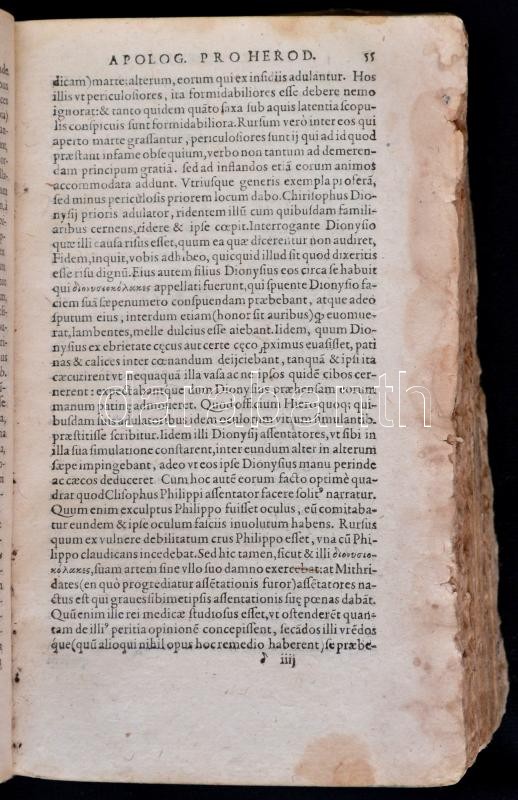 APOLOG. PRO HEROD. 55
dicam) marte: alterum, eorum qui ex insidiis adulantur. Hos
illis vt periculosiores, ita formidabiliores esse debere nemo
ignorat: & tanto quidem quãto saxa sub aquis latentia scopu-
lis conspicuis sunt formidabiliora. Rursum verò inter eos qui
aperto marte grassantur, periculosiores sunt ij qui ad id quod
præstant infame obsequium, verbo non tantum ad demeren-
dam principum gratiã. sed ad inflandos etiã eorum animos
accommodata addunt. Vtriusque generis exempla proferã,
sed minus periculosis priorem locum dabo. Chirisophus Dio-
nysij prioris adulator, ridentem illũ cum quibusdam famili-
aribus cernens, ridere & ipse cœpit. Interrogante Dionysio
quæ illi causa risus esset, quum ea quæ dicerentur non audiret,
Fidem, inquit, vobis adhibeo, quicquid illud sit quod dixeritis
esse risu dignũ. Eius autem filius Dionysius eos circa se habuit
qui διονυσιοκόλακες appellati fuerunt, qui spuente Dionysio fa-
ciem suã sæpenumero conspuendam præbebant, atque adeo
sputum eius, interdum etiam (honor sit auribus) qd euomue-
rat, lambentes, melle dulcius esse aiebant. Iidem, quum Dio-
nysius ex ebrietate cęcus aut certe cęco proximus euasisset, pati
nas & calices inter cœnandum deijciebant, tanquã & ipsi ita
cæcutirent vt nequaquã illa vasa ac ne ipsos quidẽ cibos cer-
nerent: expectabantque dum Dionysius præhensam eorum
manum patinę admoueret. Quod officium Hieroni quoq; qui-
busdam ipsius adulatoribus idem oculorum vitium simulantib.
præstitisse scribitur. Iidem illi Dionysij assentatores, vt sibi in
illa sua simulatione constarent, inter eundum alter in alterum
sæpe impingebant, adeo vt eos ipse Dionysius manu perinde
ac cæcos deduceret. Cum hoc autẽ eorum facto optimè qua-
drat quod Clisophus Philippi assentator facere solit⁹ narratur.
Quum enim exculptus Philippo fuisset oculus, eũ comitaba-
tur eundem & ipse oculum fasciis inuolutum habens. Rursus
quum ex vulnere debilitatum crus Philippo esset, vna cũ Phi-
lippo claudicans incedebat. Sed hic tamen, sicut & illi διονυσιο-
κόλακες, suam artem sine vllo suo damno exercebat: at Mithri-
dates (en quò progrediatur assẽtationis furor) assẽtatores na-
ctus est qui graues sibimetipsis assentationis suę pœnas dabãt.
Quũ enim ille rei medicæ studiosus esset, vt ostenderẽt quan-
tam de illi⁹ peritia opinionẽ concepissent, secãdos illi vrẽdos
que (quũ alioqui nihil opus hoc remedio haberent) se præbe-
iiij
darabanth